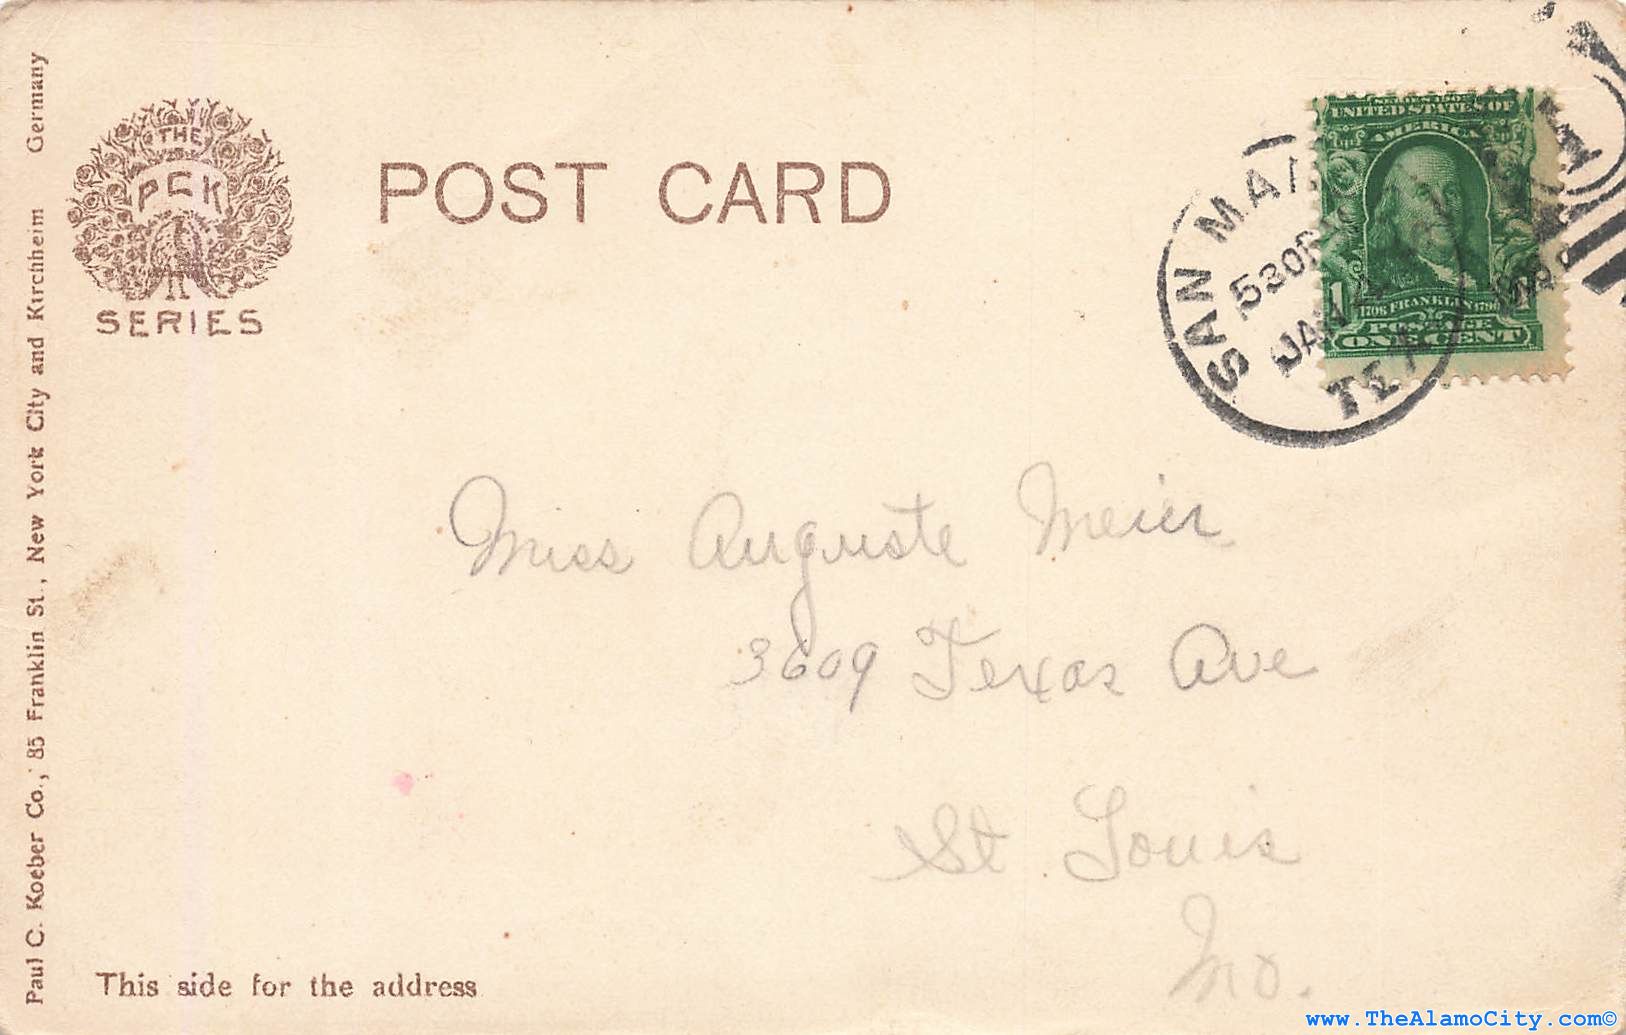 Paul C. Koeber Co., 85 Franklin St., New York City and Kirchheim Germany
THE
PCK
SERIES
POST CARD
SERIES 1902
UNITED STATES OF
AMERICA
1706 FRANKLIN 1790
POSTAGE
ONE CENT
SAN MA
530P
JAN
TEX
Miss Auguste Meier
3609 Texas Ave
St Louis
Mo.
This side for the address
www.TheAlamoCity.com©